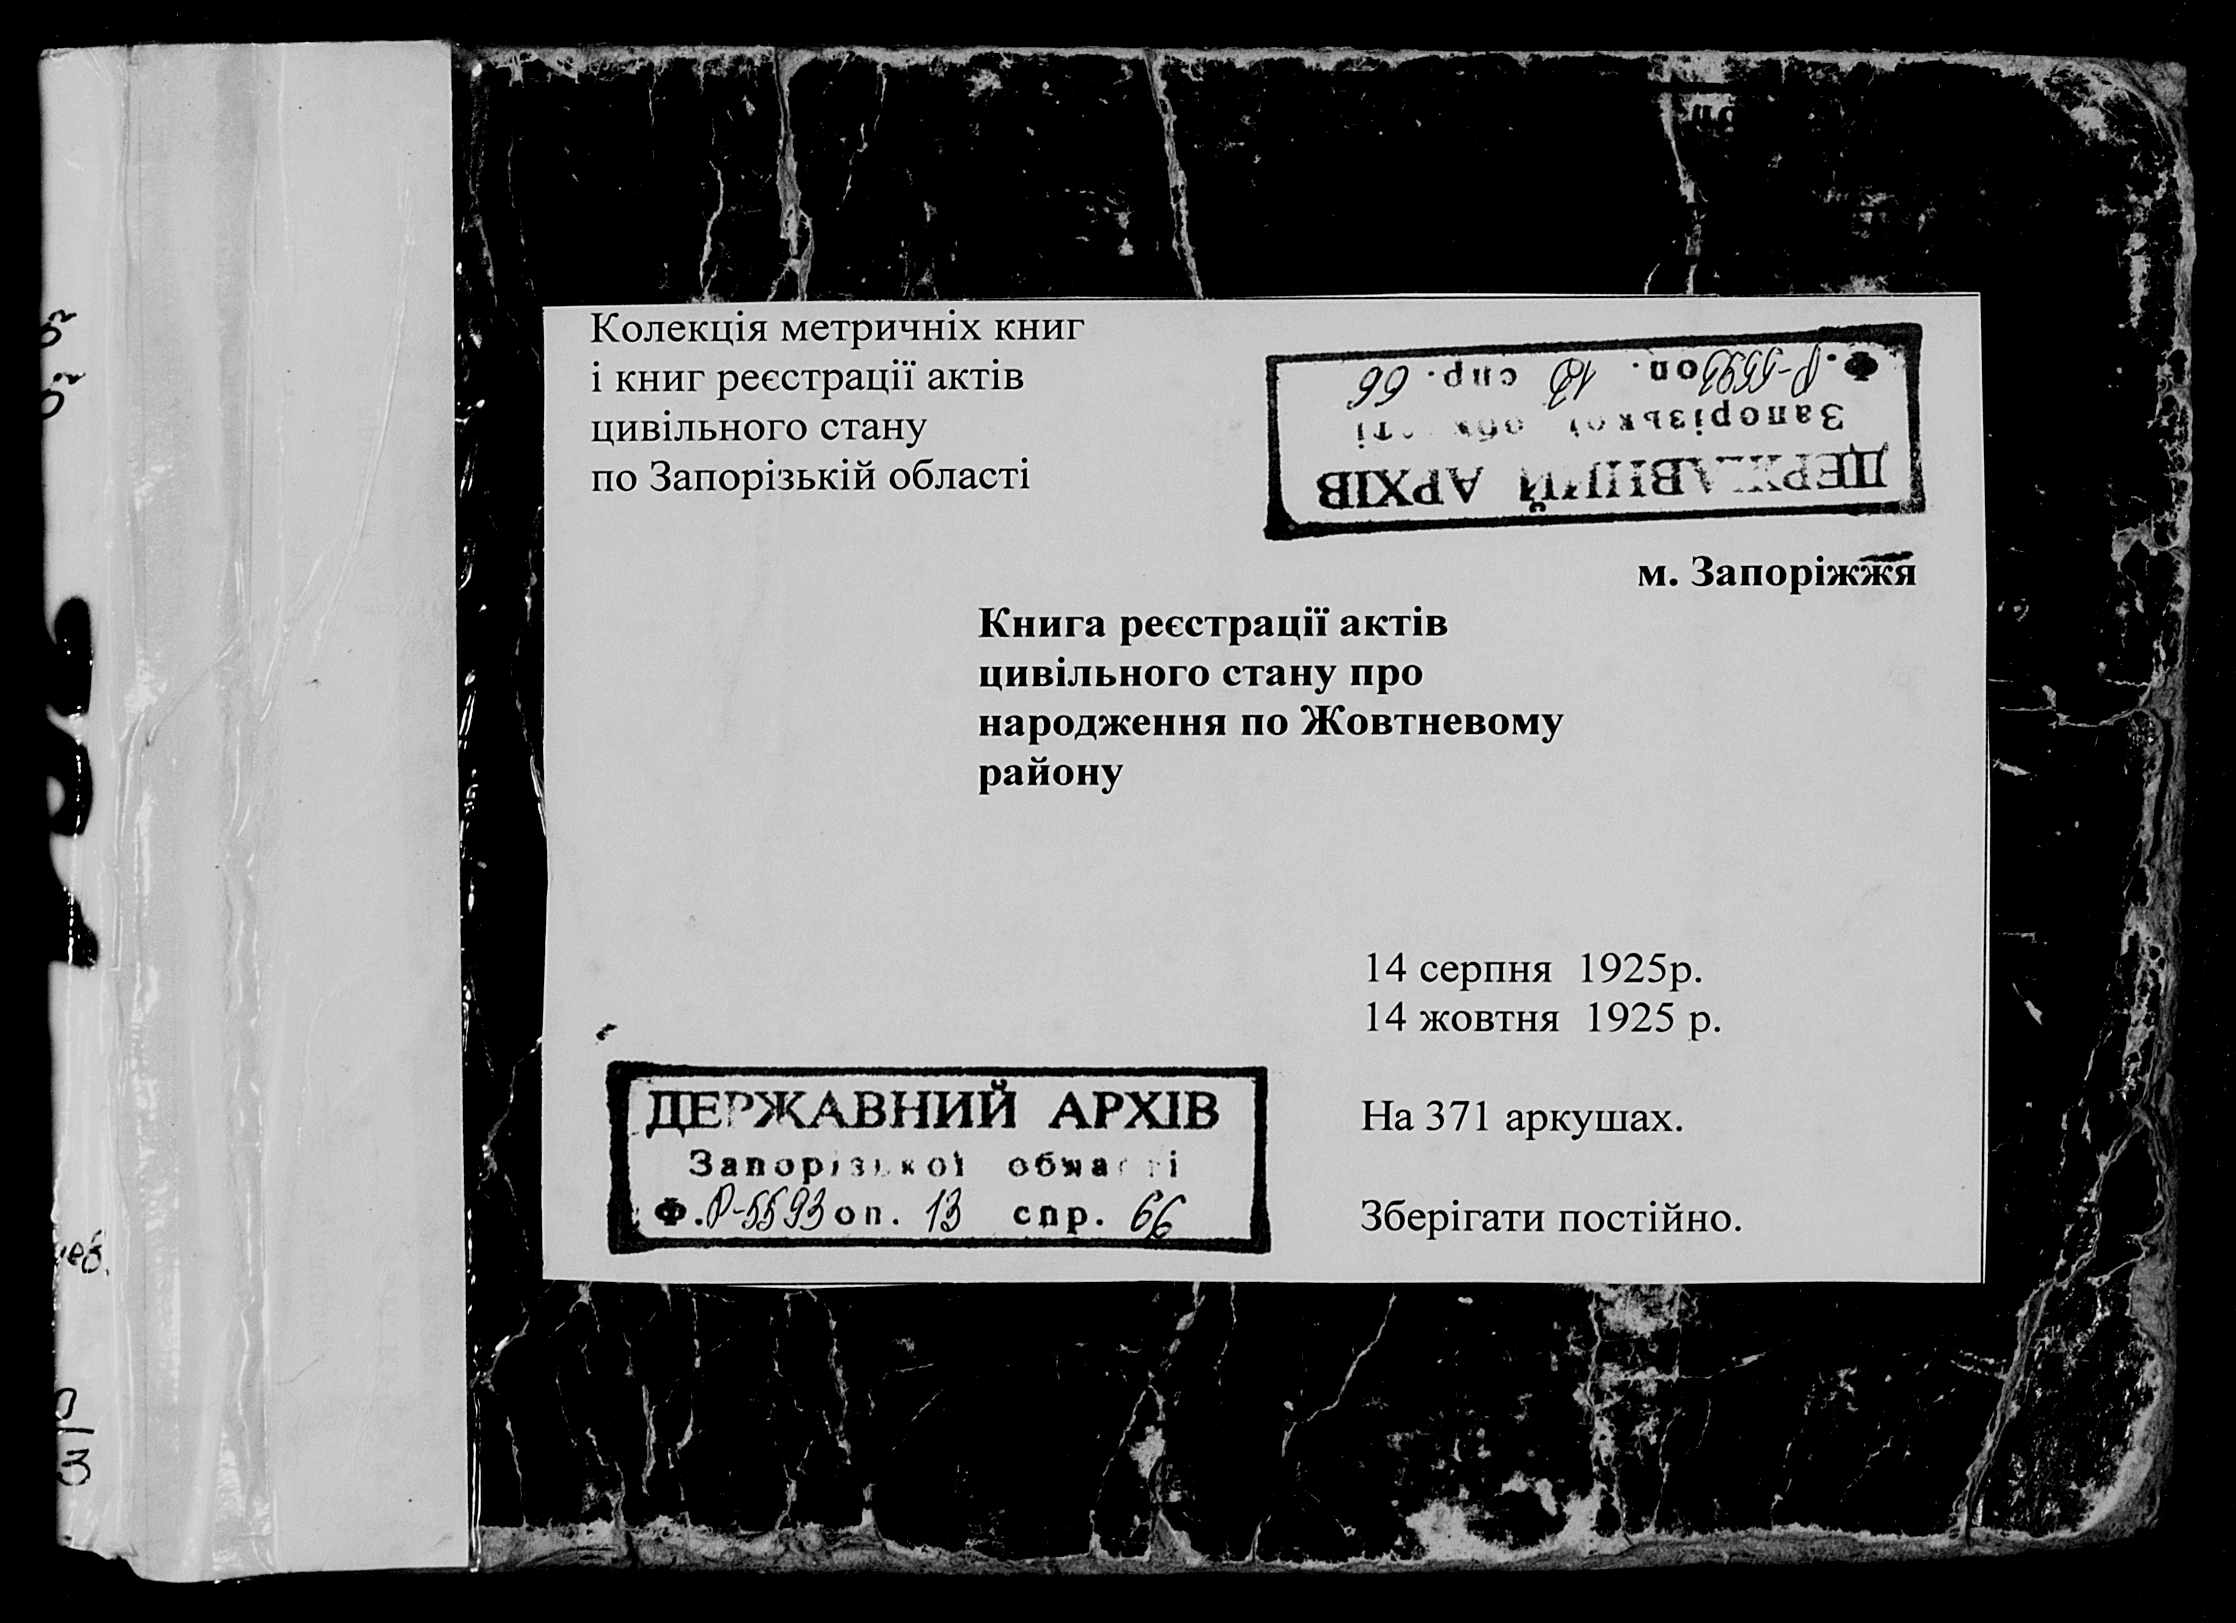 Колекція метричніх книг
і книг реєстрації актів
цивільного стану
по Запорізькій області
Ф. Р-5593 оп. 13 спр. 66
Запорізької області
ДЕРЖАВНИЙ АРХІВ
м. Запоріжжя
Книга реєстрації актів
цивільного стану про
народження по Жовтневому
району
14 серпня 1925р.
14 жовтня 1925 р.
На 371 аркушах.
Зберігати постійно.
ДЕРЖАВНИЙ АРХІВ
Запорізької області
Ф. Р-5593 оп. 13 спр. 66